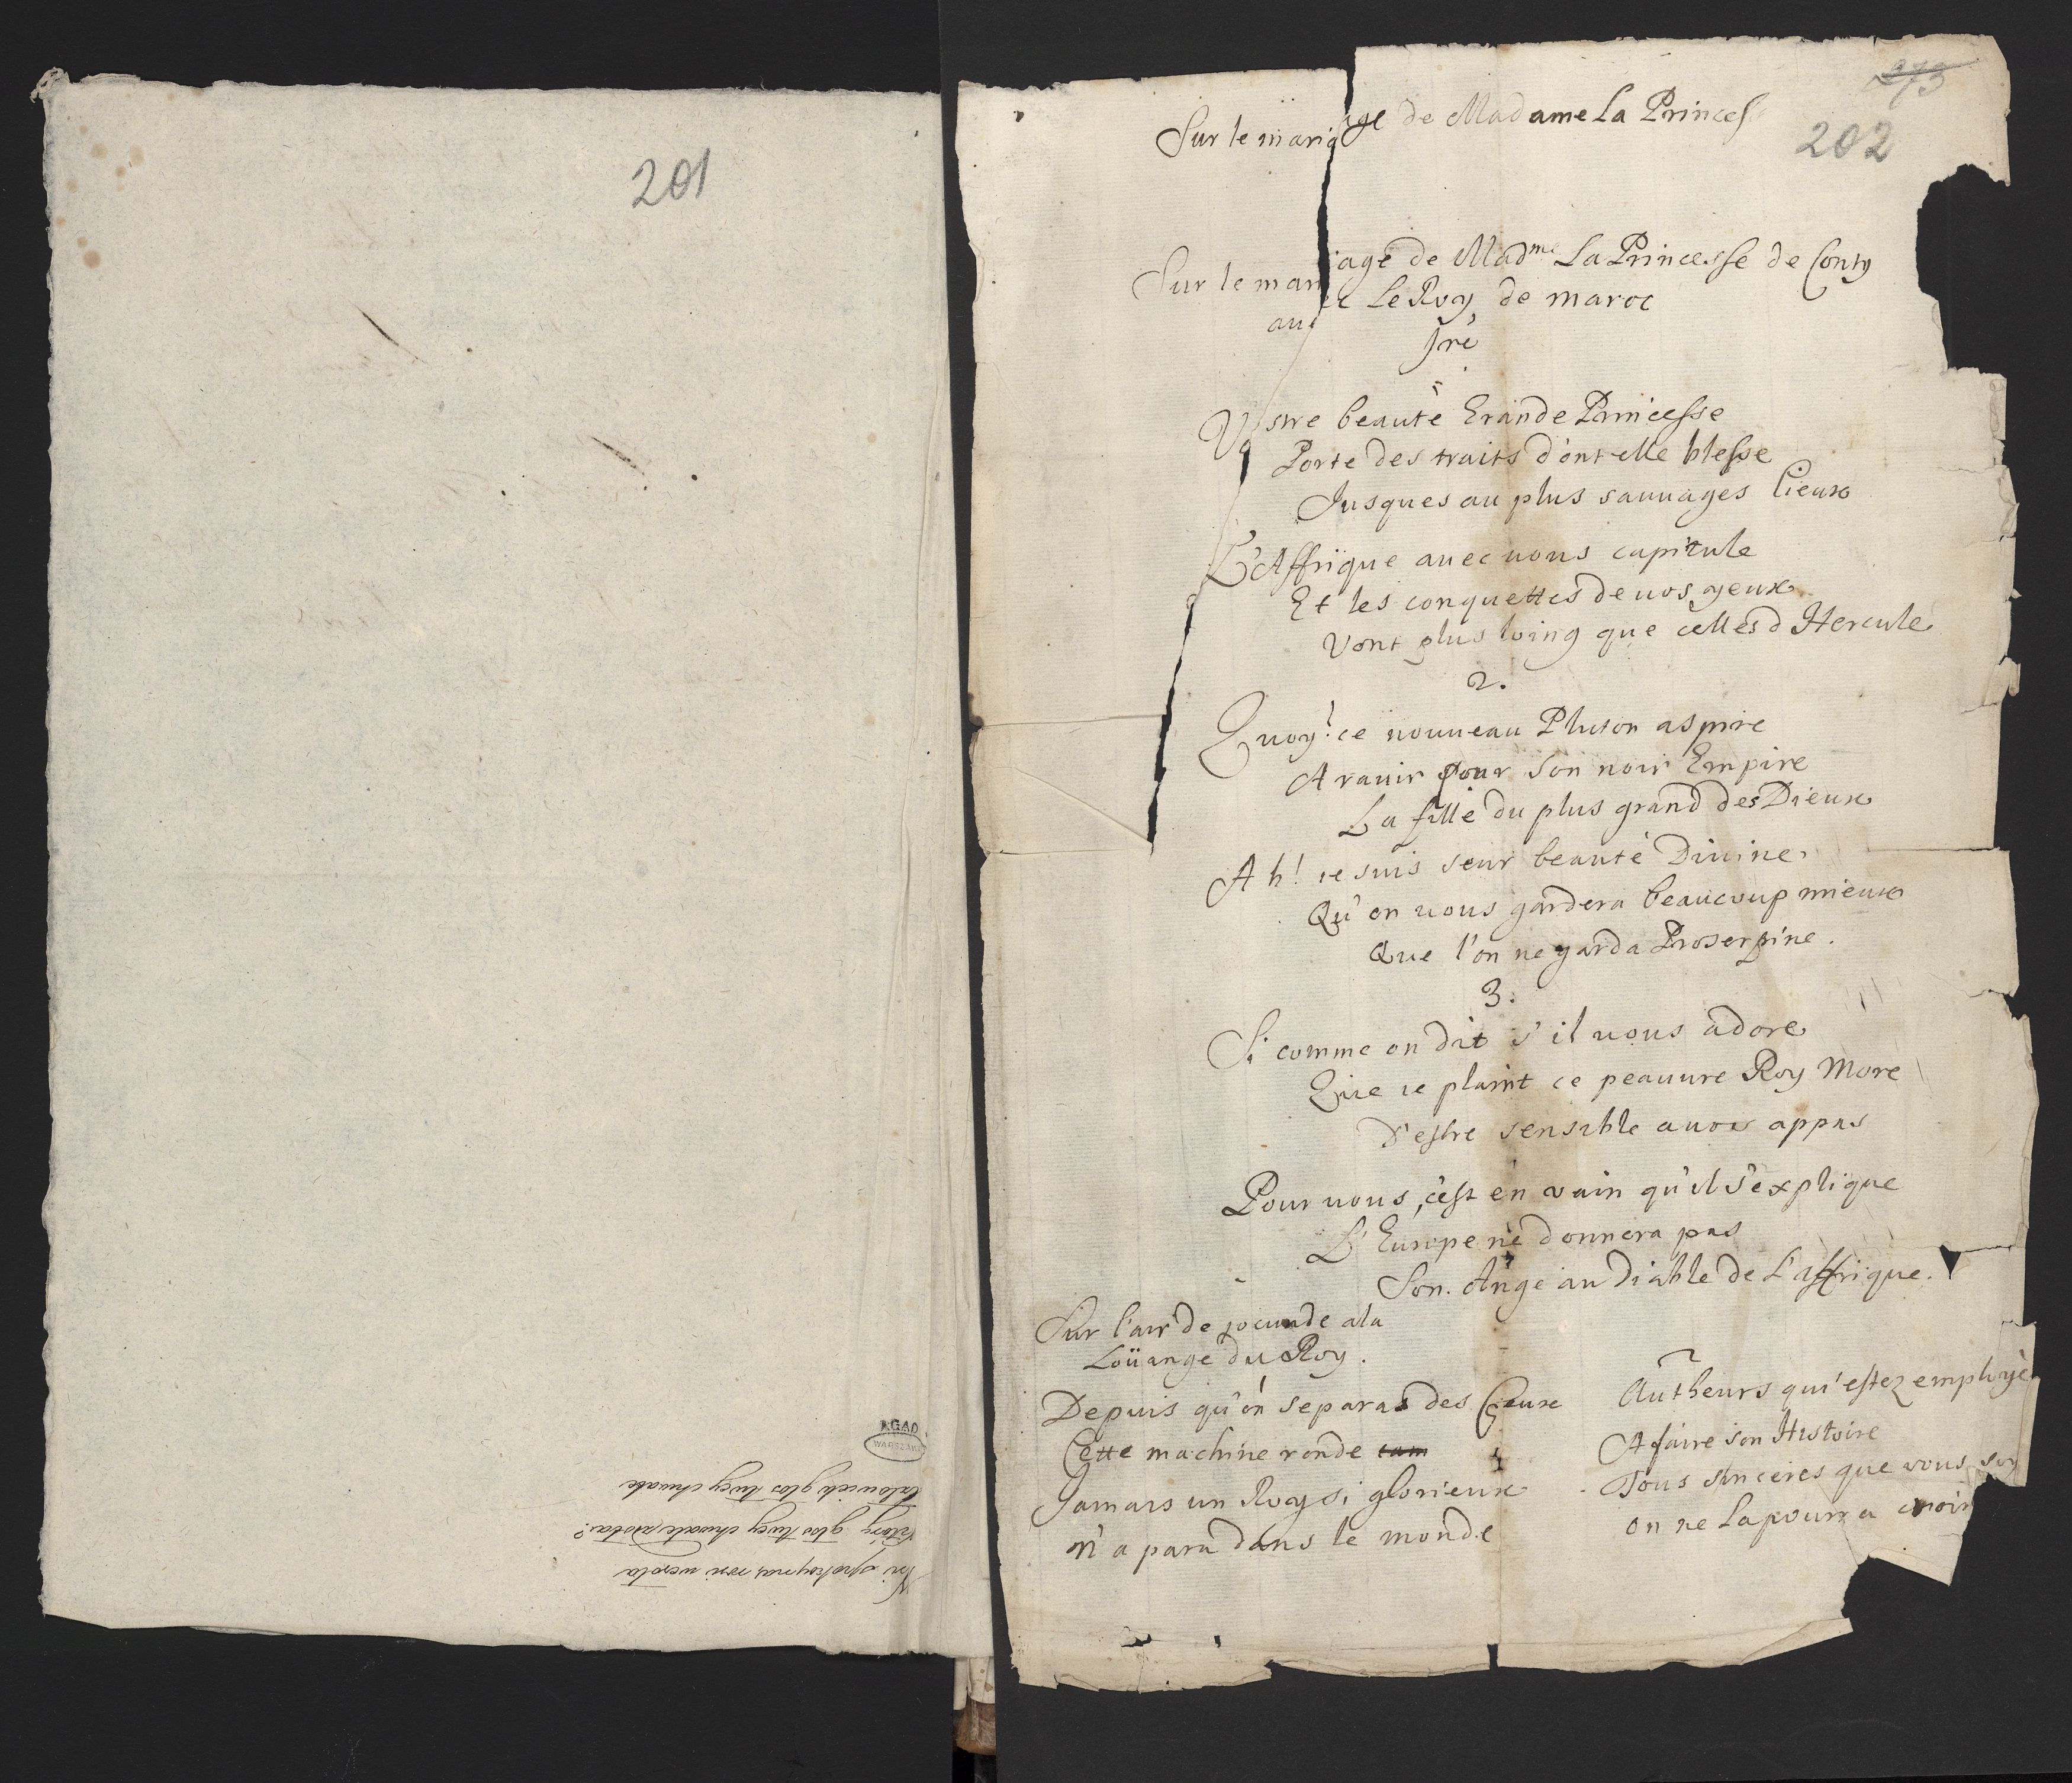 201
AGAD
WARSZAWA
273
202
Sur le mariage de Madame La Princess
Sur le mariage de Mad.me La Princesse de Conty
auec Le Roy de maroc
Vostre beauté Grande Princesse
Porte des traits d'ont elle blesse
Jusques au plus sauuages lieux
L'Affrique auec uous capitule
Et les conquettes de uos yeux
Vont plus loing que celles d Hercule
2.
Quoy! ce nouueau Pluton aspire
A rauir pour son noir Empire
La fille du plus grand des Dieux
Ah! ie suis seur beauté Diuine
Qu'on uous gardera beaucoup mieux
Que l'on ne garda Proserpine.
3.
Si comme on dit s'il uous adore
Que ie plaint ce peauure Roy More
D'estre sensible a uos appas
Pour uous, c'est en vain qu'il s'explique
L'Europe ne donnera pas
Son Ange au Diable de L'affrique.
Sur l'air de jocunde a la
Loüange du Roy.
Depuis qu'on separa des Cieux
Cette machine ronde
Jamais un Roy si glorieux
n'a paru dans le monde
Autheurs qui estez employé
A faire son Histoire
Tous sinceres que vous soy
on ne la pourra croir